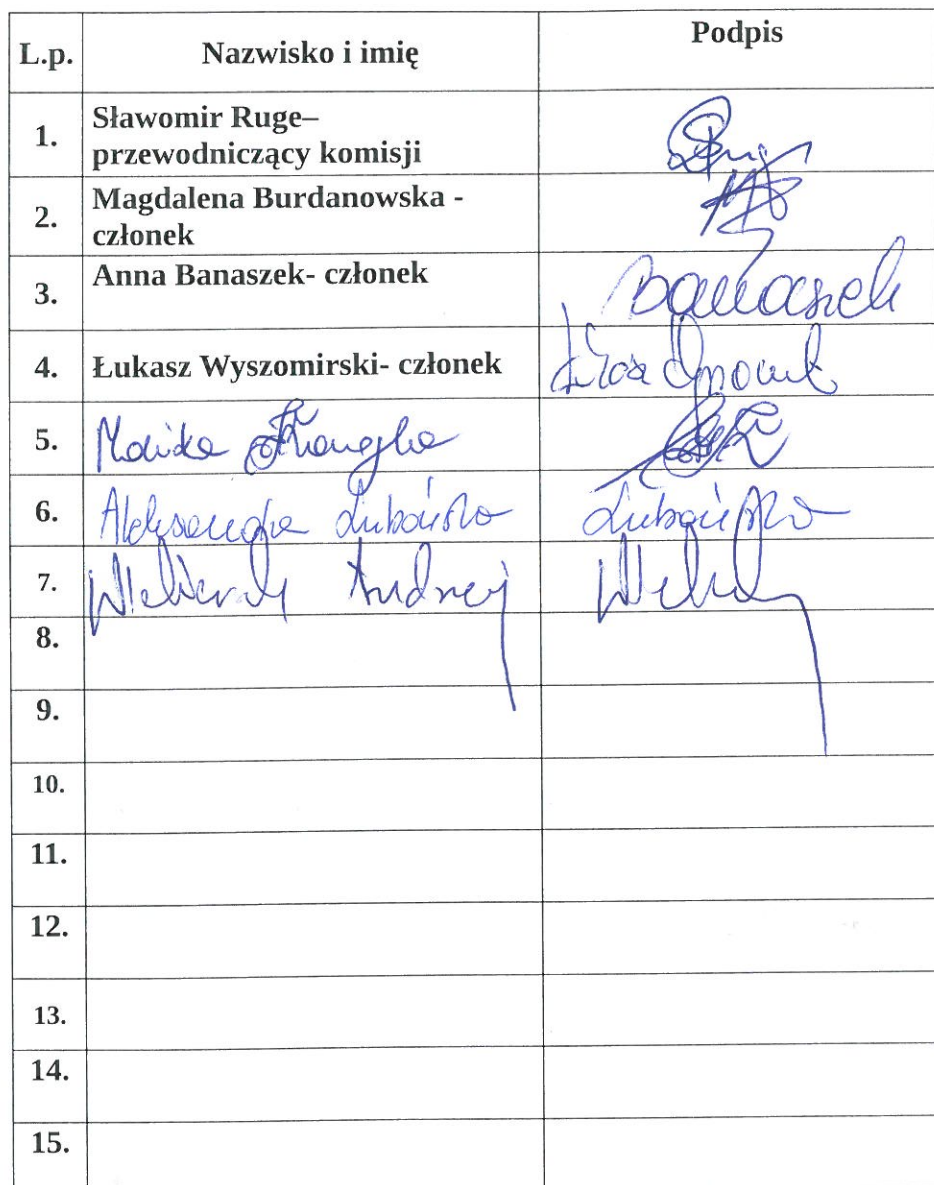 L.p. Nazwisko i imię Podpis
1. Sławomir Ruge–
przewodniczący komisji
2. Magdalena Burdanowska -
członek
3. Anna Banaszek- członek Banaszek
4. Łukasz Wyszomirski- członek
5.
6. Aleksandra Lubańska Lubańska
7. Andrzej
8.
9.
10.
11.
12.
13.
14.
15.